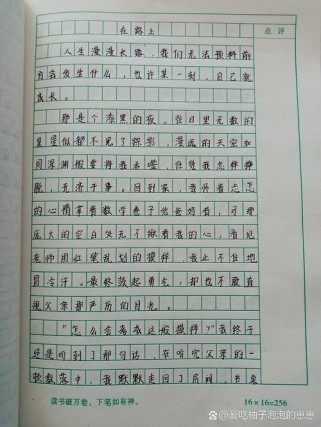 在路上
点评
人生漫漫长路，我们无法预料前
方会发生什么，也许某一刻，自己就
成长。
那是个漆黑的夜。往日里无数的
星星似都不见了踪影，漫远的天空如
同深渊般要将我吞噬，任凭我怎样挣
脱，无济于事。回到家，我怀着忐忑
的心情拿着数学卷子给爸妈看，可那
庞大的空白处无不揪着我的心，看见
老师用红笔乱划的模样，我止不住地
冒冷汗。最终鼓起勇气，却也不敢直
视父亲那严厉的目光。
“怎么会考成这般模样？”我终于
还是听到了那句话，在听完父亲的一
顿数落中，我默默走回了房间，书桌
读书破万卷，下笔如有神。
16×16=256
@爱吃柚子泡泡的崽崽